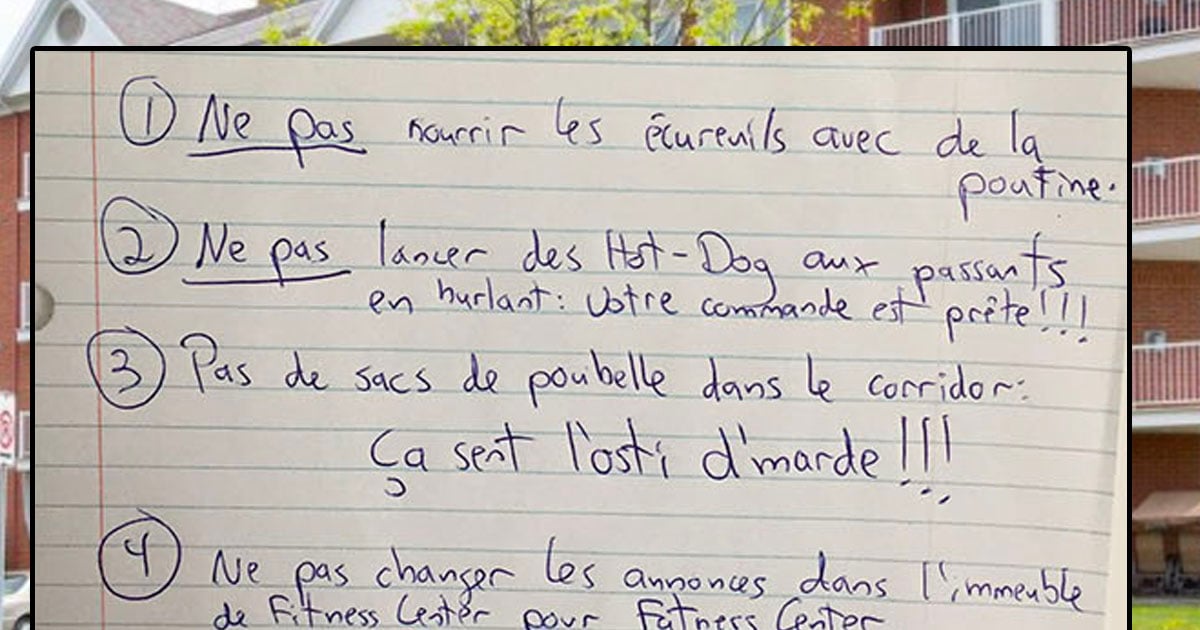 ① Ne pas nourrir les écureuils avec de la
poutine.
② Ne pas lancer des Hot-Dog aux passants
en hurlant: Votre commande est prête!!!
③ Pas de sacs de poubelle dans le corridor:
Ça sent l'osti d'marde!!!
④ Ne pas changer les annonces dans l'immeuble
de Fitness Center pour Fatness Center